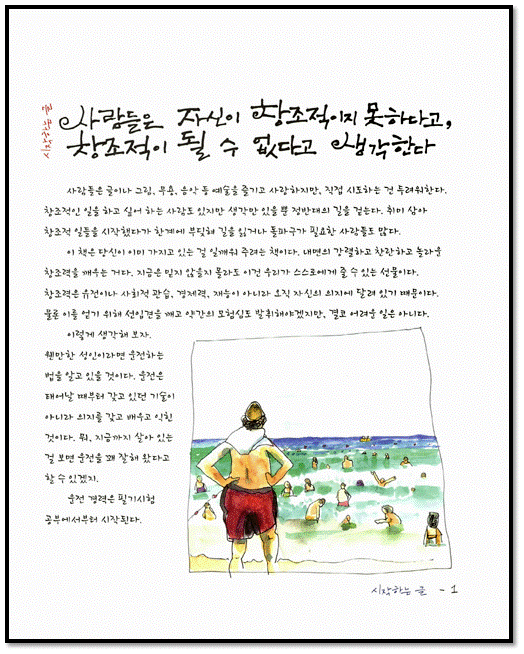 사람들은 자신이 창조적이지 못하다고,
창조적이 될 수 없다고 생각한다
사람들은 글이나 그림, 무용, 음악 등 예술을 즐기고 사랑하지만, 직접 시도하는 건 두려워한다.
창조적인 일을 하고 싶어 하는 사람도 있지만 생각만 있을 뿐 정반대의 길을 걷는다. 취미 삼아
창조적 일들을 시작했다가 한계에 부딪혀 길을 잃거나 돌파구가 필요한 사람들도 많다.
이 책은 당신이 이미 가지고 있는 걸 일깨워 주려는 책이다. 내면의 강렬하고 찬란하고 놀라운
창조력을 깨우는 거다. 지금은 믿지 않을지 몰라도 이건 우리가 스스로에게 줄 수 있는 선물이다.
창조력은 유전이나 사회적 관습, 경제력, 재능이 아니라 오직 자신의 의지에 달려 있기 때문이다.
물론 이를 얻기 위해 선입견을 깨고 약간의 모험심도 발휘해야겠지만, 결코 어려운 일은 아니다.
이렇게 생각해 보자.
웬만한 성인이라면 운전하는
법을 알고 있을 것이다. 운전은
태어날 때부터 갖고 있던 기술이
아니라 의지를 갖고 배우고 익힌
것이다. 뭐, 지금까지 살아 있는
걸 보면 운전을 꽤 잘해 왔다고
할 수 있겠지.
운전 경력은 필기시험
공부에서부터 시작된다.
시작하는 글 - 1